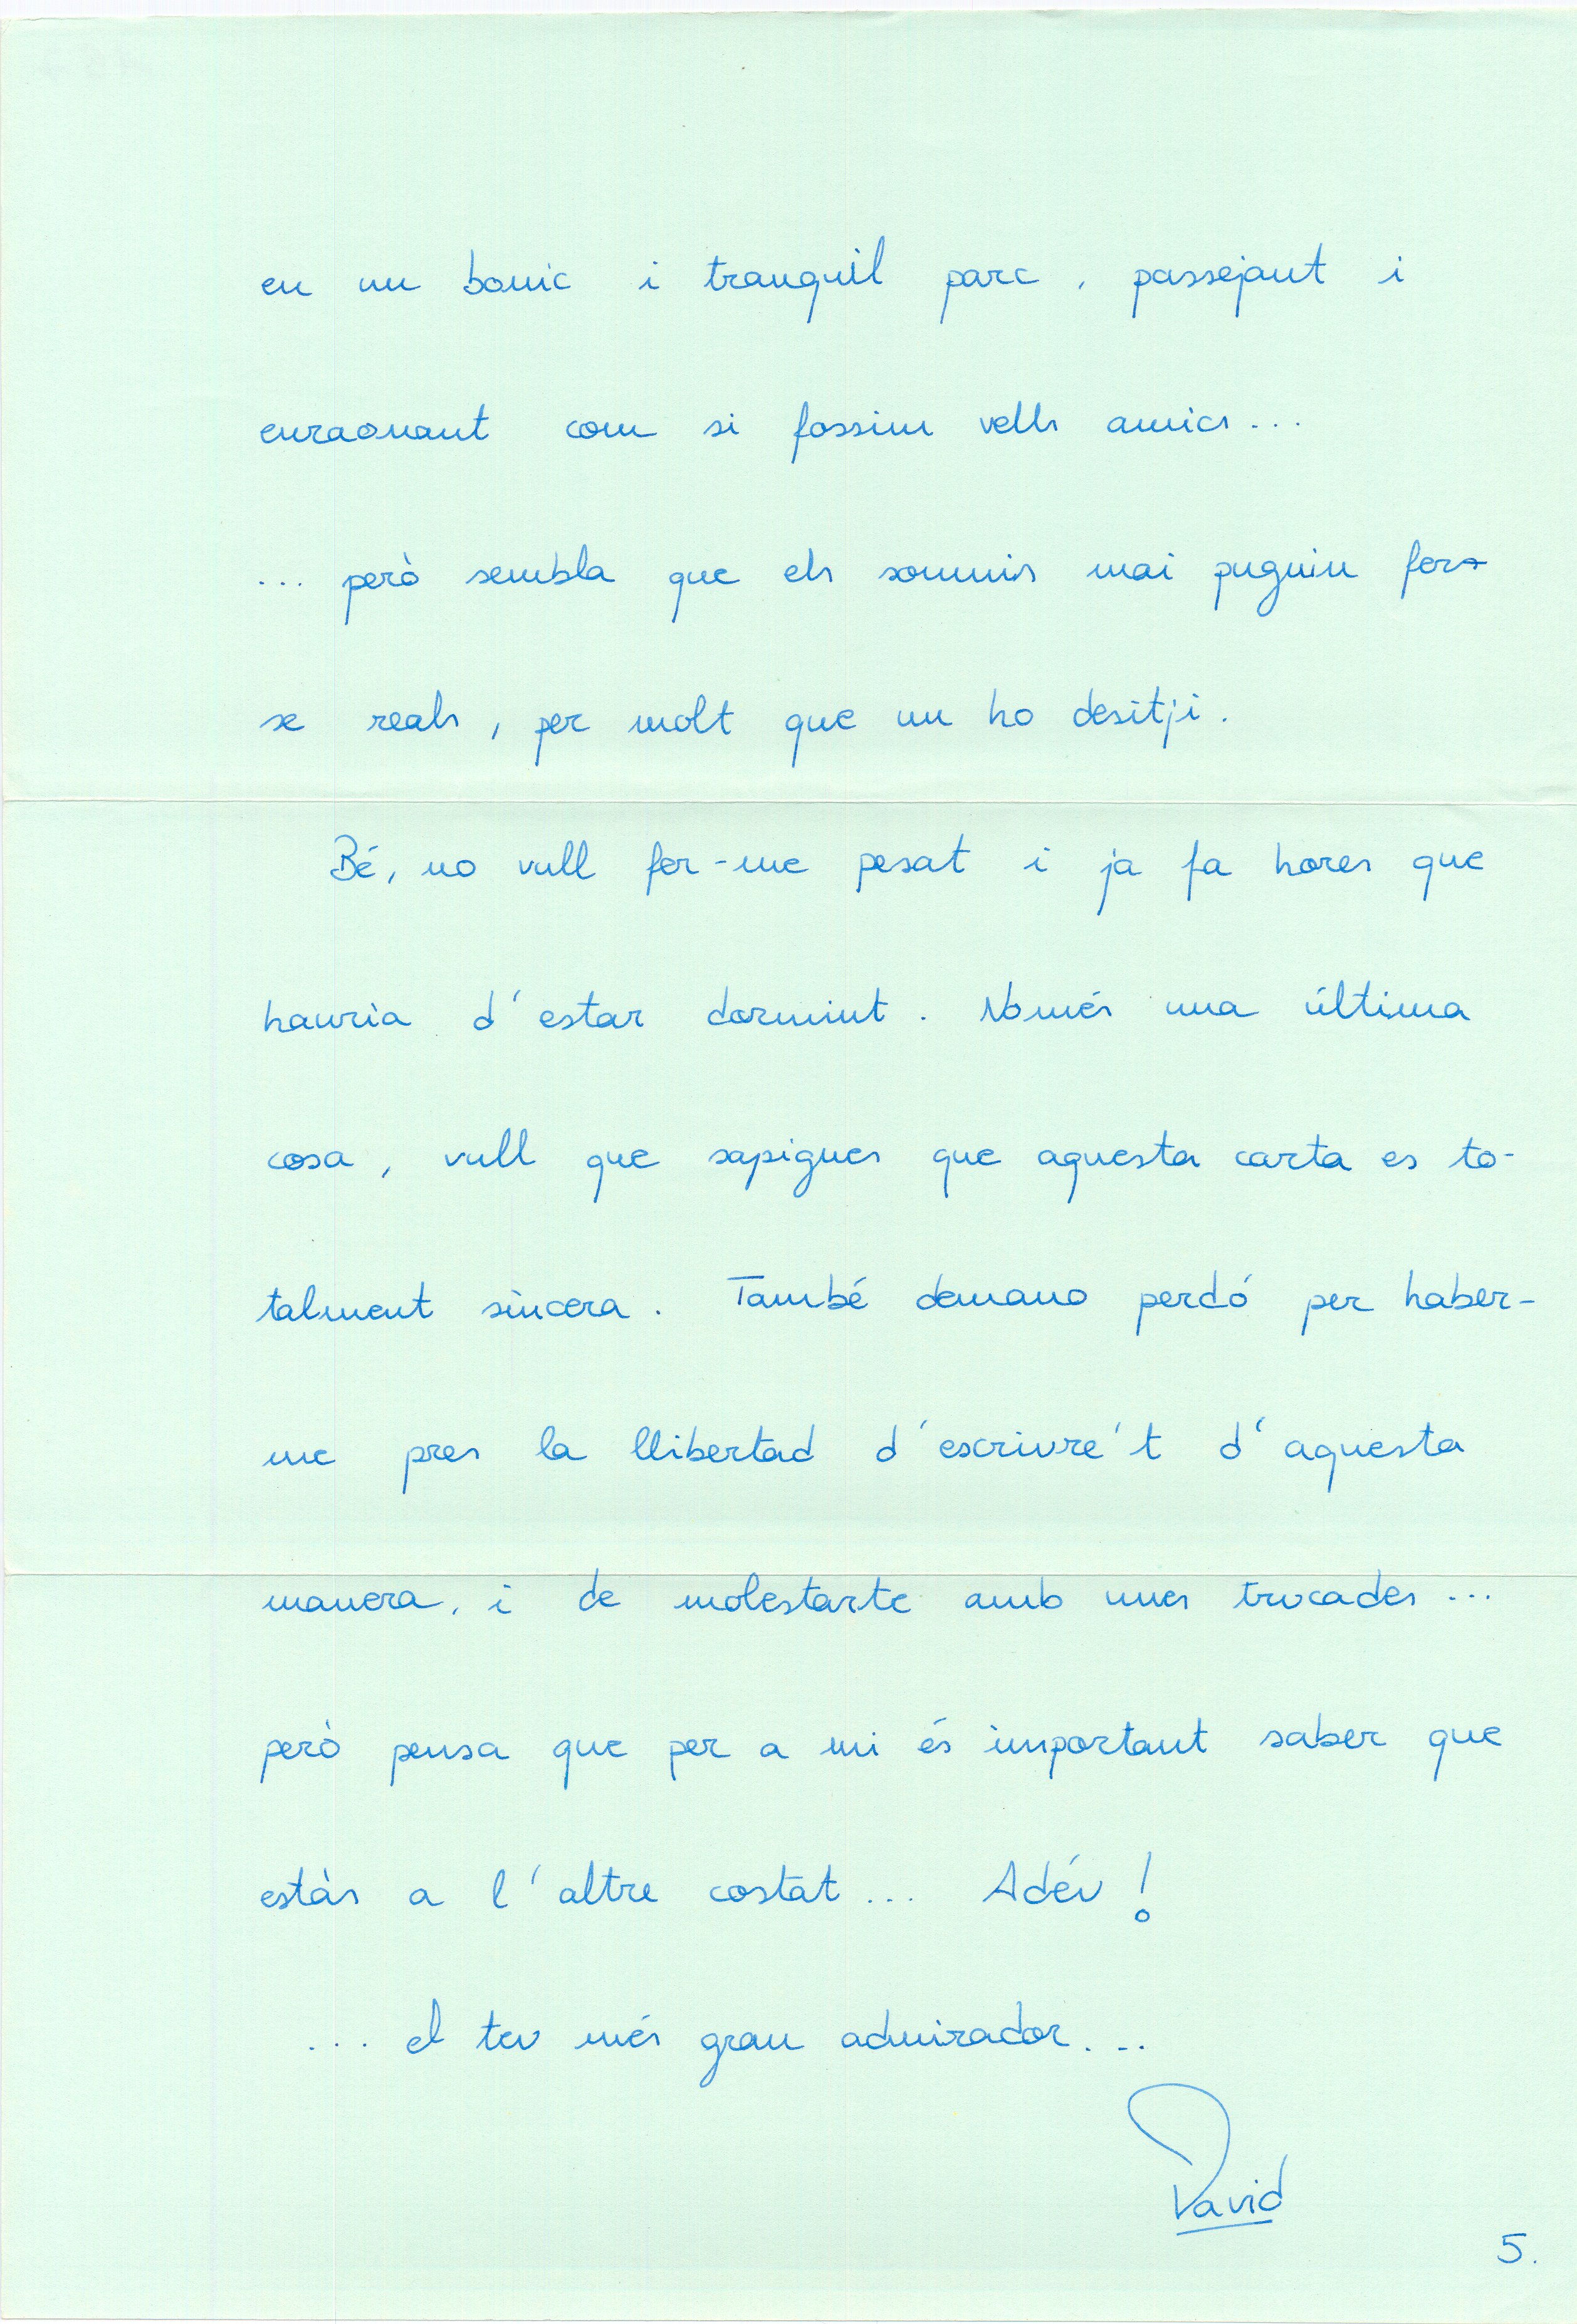 en un bonic i tranquil parc, passejant i
enraonant com si fossim vells amics...
... però sembla que els somnis mai puguin fer-
se reals, per molt que un ho desitji.
Bé, no vull fer-me pesat i ja fa hores que
hauria d'estar dormint. Només una última
cosa, vull que sapigues que aquesta carta es to-
talment sincera. També demano perdó per haber-
me pres la llibertad d'escriure't d'aquesta
manera, i de molestarte amb unes trucades...
però pensa que per a mi és important saber que
estàs a l'altre costat... Adéu!
... el teu més gran admirador...
David
5.